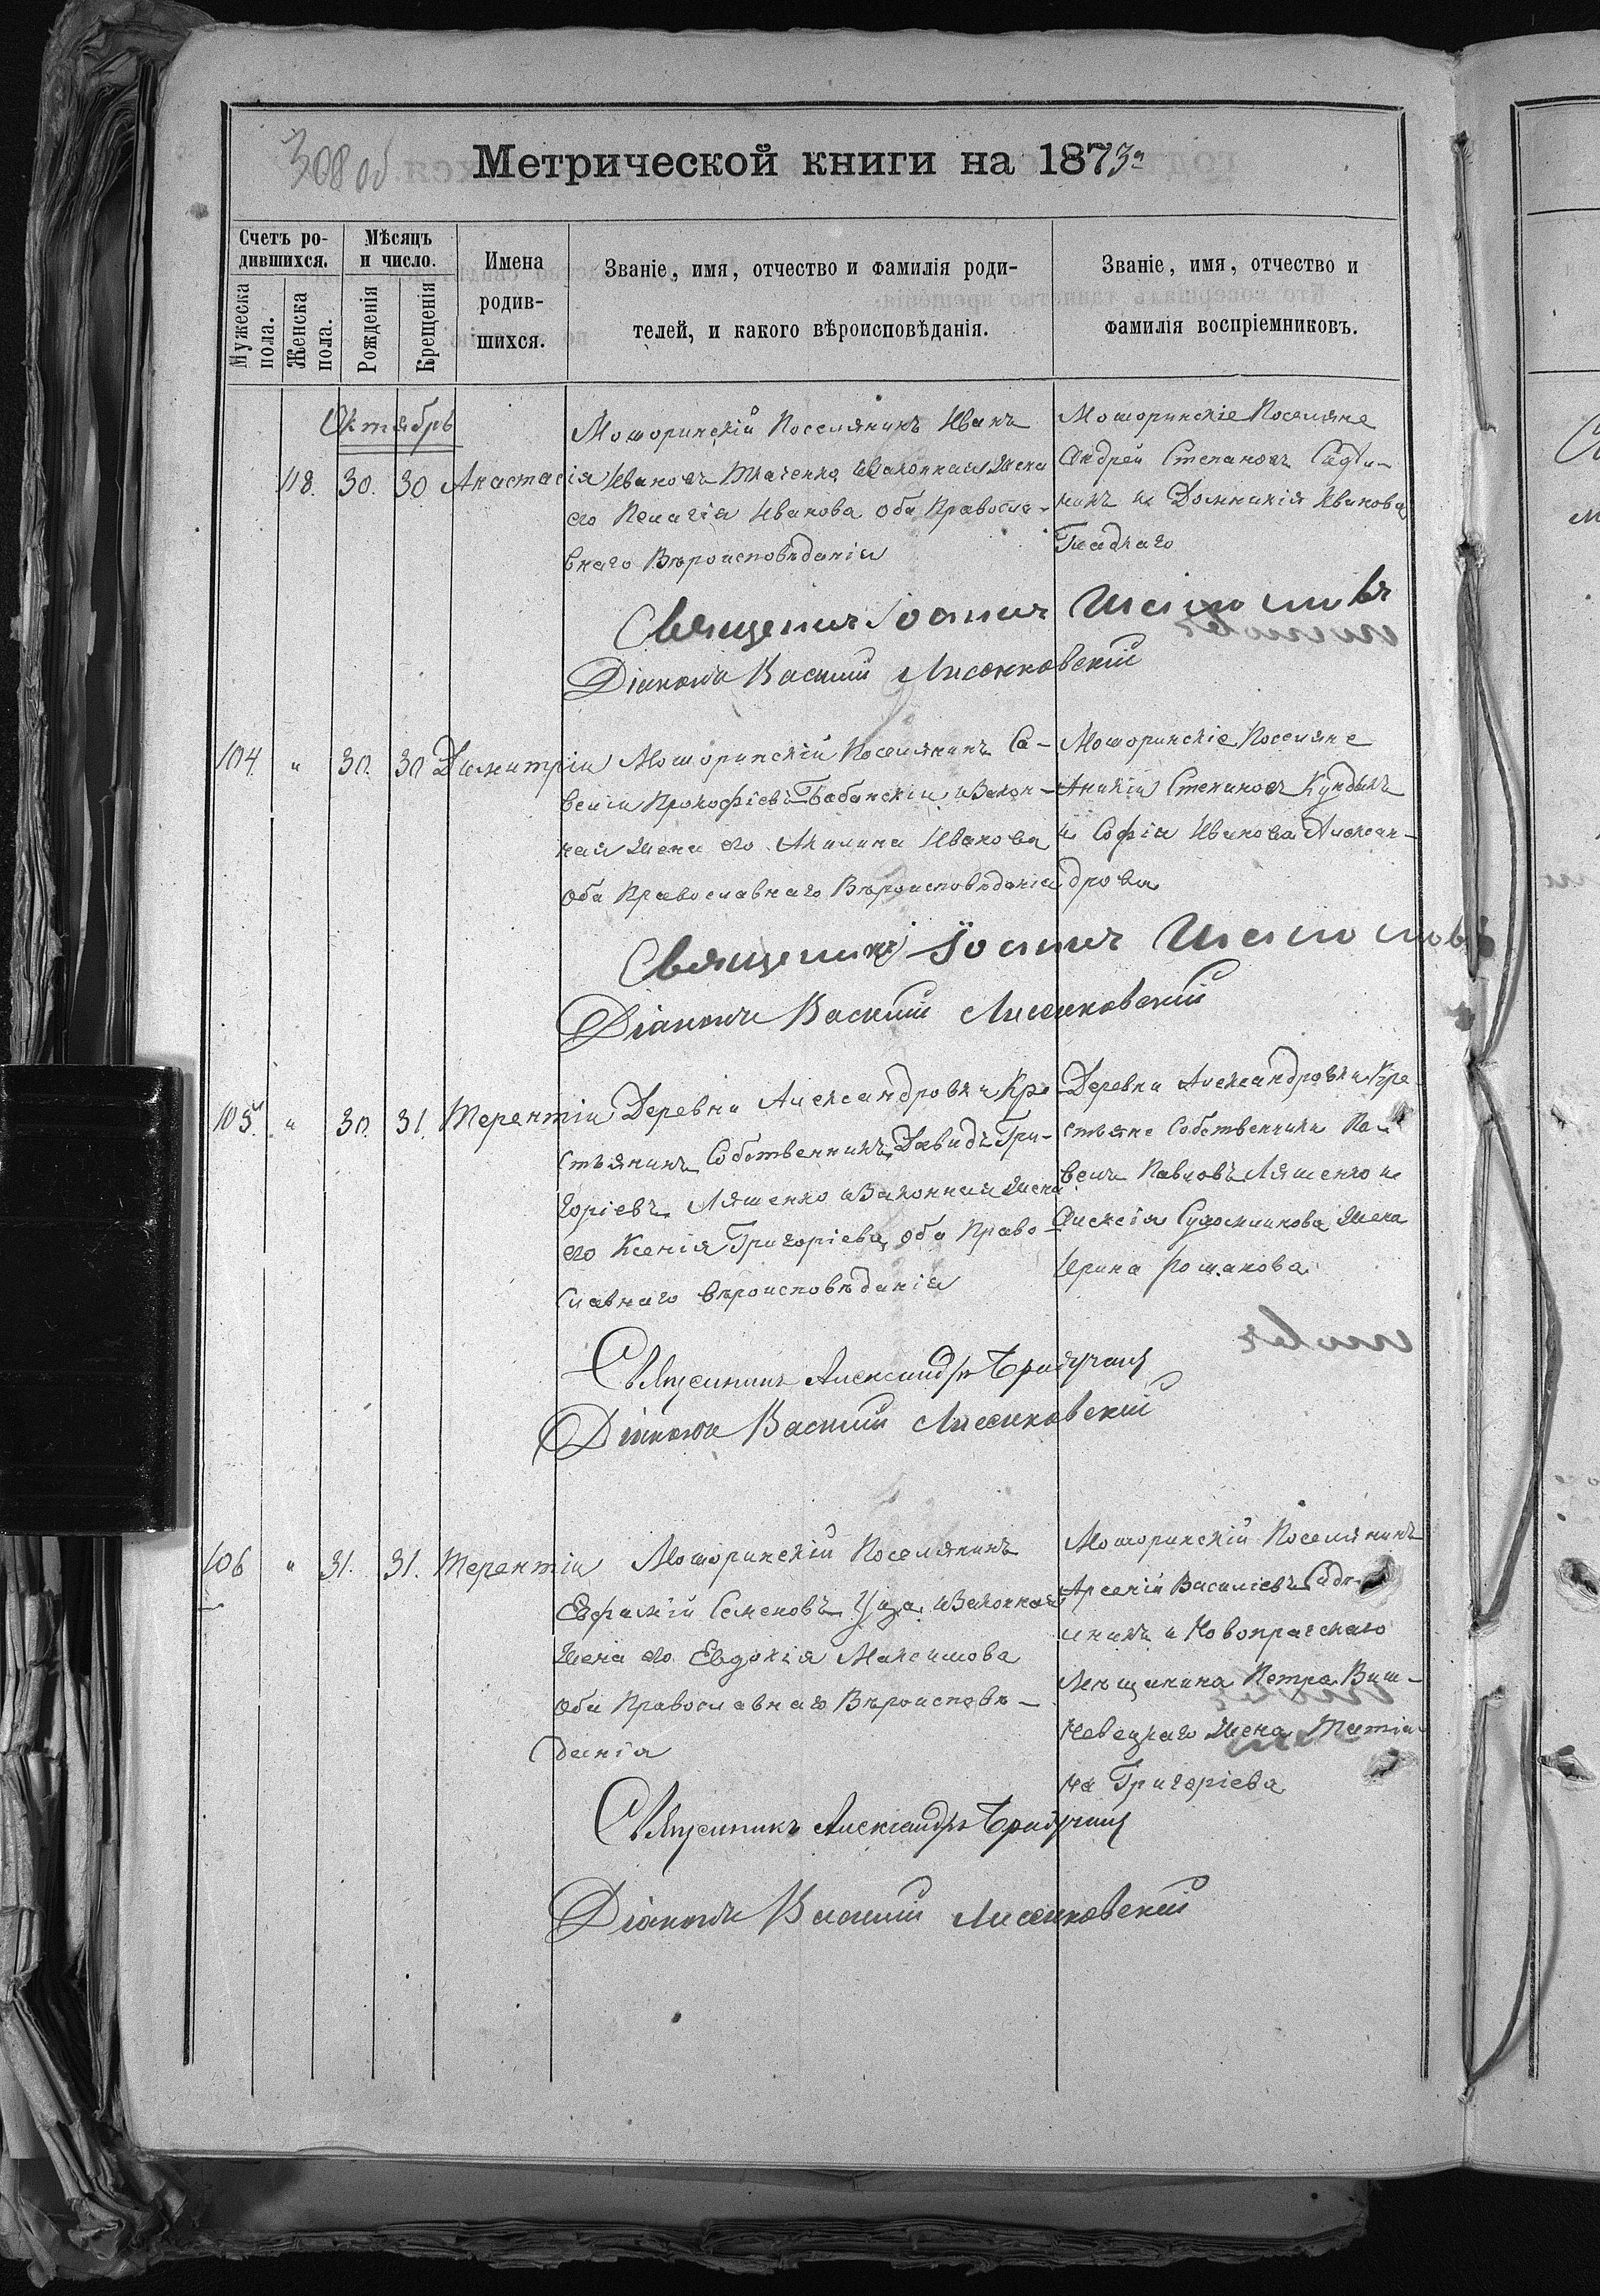 308 об
Метрической книги на 1873 г.
Счетъ ро-
дившихся.
Мѣсяцъ
и число.
Мужеска
пола.
Женска
пола.
Рожденія
Крещенія
Имена
родив-
шихся.
Званіе, имя, отчество и фамилія роди-
телей, и какого вѣроисповѣданія.
Званіе, имя, отчество и
фамилія воспріемниковъ.
Октябрь
118. 30. 30 Анастасія
Мошоринскій Поселянинъ Иванъ
Ивановъ Ткаченко изаконная жена
его Пелагія Иванова оба Правосла-
внаго Вѣроисповѣданія
Мошоринскіе Поселяне
Андрей Степановъ
и Домникія Иванова
Гладкаго
Священикъ Іоаннъ
Діаконъ Василій Лисенковскій
104. " 30. 30 Димитрій
Мошоринскій Поселянинъ Са-
велій Прокофіевъ Бабанскій изакон-
ная жена его Акилина Иванова
оба Православнаго Вѣроисповѣданія
Мошоринскіе Поселяне
Аникій Степановъ
и Софія Иванова Алексан-
дрова
Священикъ Іоаннъ
Діаконъ Василій Лисенковскій
105. " 30. 31. Терентій
Деревни Александровки Кре-
стьянинъ Собственникъ Давидъ Гри-
горіевъ Ляшенко изаконная жена
его Ксенія Григоріева, оба Право-
славнаго вѣроисповѣданія
Деревни Александровки Кре-
стьяне Собственники Па-
велъ Павловъ Ляшенко и
Алексія жена
Ирина Романова
Священникъ Александръ
Діаконъ Василій Лисенковскій
106 " 31. 31. Терентій
Мошоринскій Поселянинъ
Евфимій Семеновъ изаконная
жена его Евдокія Максимова
оба Православнаго Вѣроисповѣ-
данія
Мошоринскій Поселянинъ
Арсеній Василіевъ
и Новопражскаго
Мѣщанина Петра Виш-
невецкаго жена Татія-
на Григоріева
Священникъ Александръ
Діаконъ Василій Лисенковскій